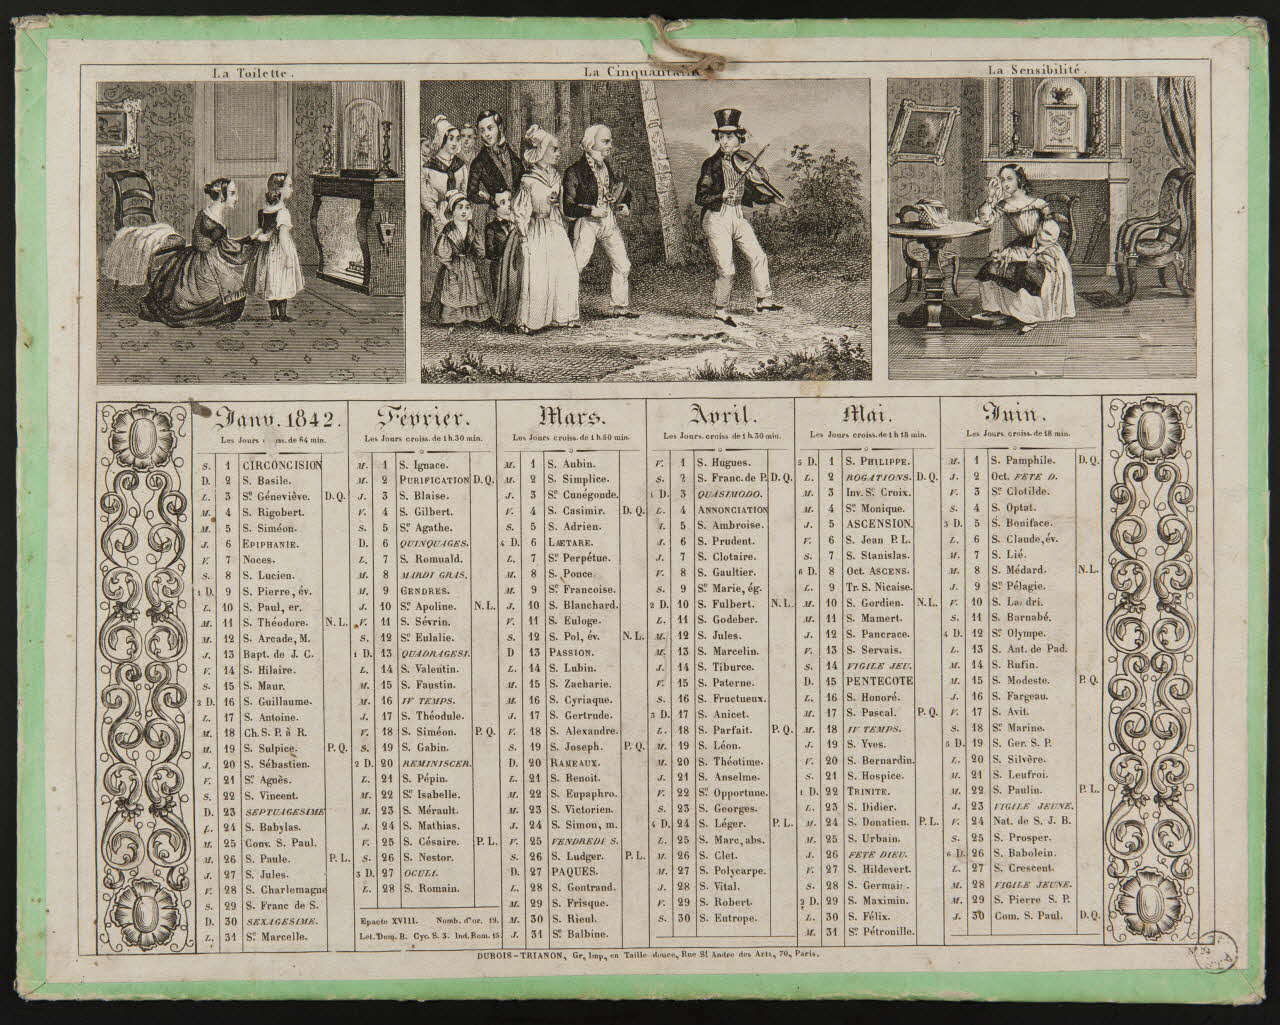 La Toilette.
La Cinquantaine
La Sensibilité.
Janv. 1842.
Les Jours croiss. de 64 min.
S. 1 CIRCONCISION
D. 2 S. Basile.
L. 3 Ste Géneviève. D.Q.
M. 4 S. Rigobert.
M. 5 S. Siméon.
J. 6 EPIPHANIE.
V. 7 Noces.
S. 8 S. Lucien.
1 D. 9 S. Pierre, év.
L. 10 S. Paul, er.
M. 11 S. Théodore. N.L.
M. 12 S. Arcade, M.
J. 13 Bapt. de J. C.
V. 14 S. Hilaire.
S. 15 S. Maur.
2 D. 16 S. Guillaume.
L. 17 S. Antoine.
M. 18 Ch. S. P. à R.
M. 19 S. Sulpice. P.Q.
J. 20 S. Sébastien.
V. 21 Ste Agnès.
S. 22 S. Vincent.
D. 23 SEPTUAGESIME
L. 24 S. Babylas.
M. 25 Conv. S. Paul.
M. 26 S. Paule. P.L.
J. 27 S. Jules.
V. 28 S. Charlemagne
S. 29 S. Franc de S.
D. 30 SEXAGESIME.
L. 31 Ste Marcelle.
Février.
Les Jours croiss. de 1 h. 30 min.
M. 1 S. Ignace.
M. 2 PURIFICATION D.Q.
J. 3 S. Blaise.
V. 4 S. Gilbert.
S. 5 Ste Agathe.
D. 6 QUINQUAGES.
L. 7 S. Romuald.
M. 8 MARDI GRAS.
M. 9 CENDRES.
J. 10 Ste Apoline. N.L.
V. 11 S. Sévrin.
S. 12 Ste Eulalie.
1 D. 13 QUADRAGESI.
L. 14 S. Valentin.
M. 15 S. Faustin.
M. 16 IV TEMPS.
J. 17 S. Théodule.
V. 18 S. Siméon. P.Q.
S. 19 S. Gabin.
2 D. 20 REMINISCER.
L. 21 S. Pépin.
M. 22 Ste Isabelle.
M. 23 S. Mérault.
J. 24 S. Mathias.
V. 25 S. Césaire. P.L.
S. 26 S. Nestor.
3 D. 27 OCULI.
L. 28 S. Romain.
Epacte XVIII. Nomb. d'or. 19.
Let. Dom. B. Cyc. S. 3. Ind. Rom. 15.
Mars.
Les Jours croiss. de 1 h. 50 min.
M. 1 S. Aubin.
M. 2 S. Simplice.
J. 3 Ste Cunégonde.
V. 4 S. Casimir. D.Q.
S. 5 S. Adrien.
4 D. 6 LÆTARE.
L. 7 Ste Perpétue.
M. 8 S. Ponce
M. 9 Ste Francoise.
J. 10 S. Blanchard.
V. 11 S. Euloge.
S. 12 S. Pol, év. N.L.
D 13 PASSION.
L. 14 S. Lubin.
M. 15 S. Zacharie.
M. 16 S. Cyriaque.
J. 17 S. Gertrude.
V. 18 S. Alexandre.
S. 19 S. Joseph. P.Q.
D. 20 RAMEAUX.
L. 21 S. Benoit.
M. 22 S. Eupaphro.
M. 23 S. Victorien.
J. 24 S. Simon, m.
V. 25 VENDREDI S.
S. 26 S. Ludger. P.L.
D. 27 PAQUES.
L. 28 S. Gontrand.
M. 29 S. Frisque.
M. 30 S. Rieul.
J. 31 Ste Balbine.
Avril.
Les Jours croiss. de 1 h. 30 min.
V. 1 S. Hugues.
S. 2 S. Franc. de P. D.Q.
1 D. 3 QUASIMODO.
L. 4 ANNONCIATION
M. 5 S. Ambroise.
M. 6 S. Prudent.
J. 7 S. Clotaire.
V. 8 S. Gaultier.
S. 9 Ste Marie, ég.
2 D. 10 S. Fulbert. N.L.
L. 11 S. Godeber.
M. 12 S. Jules.
M. 13 S. Marcelin.
J. 14 S. Tiburce.
V. 15 S. Paterne.
S. 16 S. Fructueux.
3 D. 17 S. Anicet.
L. 18 S. Parfait. P.Q.
M. 19 S. Léon.
M. 20 S. Théotime.
J. 21 S. Anselme.
V. 22 Ste Opportune.
S. 23 S. Georges.
4 D. 24 S. Léger. P.L.
L. 25 S. Marc, abs.
M. 26 S. Clet.
M. 27 S. Polycarpe.
J. 28 S. Vital.
V. 29 S. Robert.
S. 30 S. Eutrope.
Mai.
Les Jours croiss. de 1 h 18 min.
5 D. 1 S. PHILIPPE.
L. 2 ROGATIONS. D.Q.
M. 3 Inv. Ste Croix.
M. 4 Ste Monique.
J. 5 ASCENSION.
V. 6 S. Jean P. L.
S. 7 S. Stanislas.
6 D. 8 Oct. ASCENS.
L. 9 Tr. S. Nicaise.
M. 10 S. Gordien. N.L.
M. 11 S. Mamert.
J. 12 S. Pancrace.
V. 13 S. Servais.
S. 14 VIGILE JEU.
D. 15 PENTECOTE
L. 16 S. Honoré.
M. 17 S. Pascal. P.Q.
M. 18 IV TEMPS.
J. 19 S. Yves.
V. 20 S. Bernardin.
S. 21 S. Hospice.
1 D. 22 TRINITE.
L. 23 S. Didier.
M. 24 S. Donatien. P.L.
M. 25 S. Urbain.
J. 26 FETE DIEU.
V. 27 S. Hildevert.
S. 28 S. Germain.
2 D. 29 S. Maximin.
L. 30 S. Félix.
M. 31 Ste Pétronille.
Juin.
Les Jours croiss. de 18 min.
M. 1 S. Pamphile. D.Q.
J. 2 Oct. FETE D.
V. 3 Ste Clotilde.
S. 4 S. Optat.
3 D. 5 S. Boniface.
L. 6 S. Claude, év.
M. 7 S. Lié.
M. 8 S. Médard. N.L.
J. 9 Ste Pélagie.
V. 10 S. Landri.
S. 11 S. Barnabé.
4 D. 12 Ste Olympe.
L. 13 S. Ant. de Pad.
M. 14 S. Rufin.
M. 15 S. Modeste. P.Q.
J. 16 S. Fargeau.
V. 17 S. Avit.
S. 18 Ste Marine.
5 D. 19 S. Ger. S. P.
L. 20 S. Silvère.
M. 21 S. Leufroi.
M. 22 S. Paulin. P.L.
J. 23 VIGILE JEUNE.
V. 24 Nat. de S. J. B.
S. 25 S. Prosper.
6 D. 26 S. Babolein.
L. 27 S. Crescent.
M. 28 VIGILE JEUNE.
M. 29 S. Pierre S. P.
J. 30 Com. S. Paul. D.Q.
DUBOIS-TRIANON, Gr, Imp, en Taille douce, Rue St André des Arts, 70, Paris.